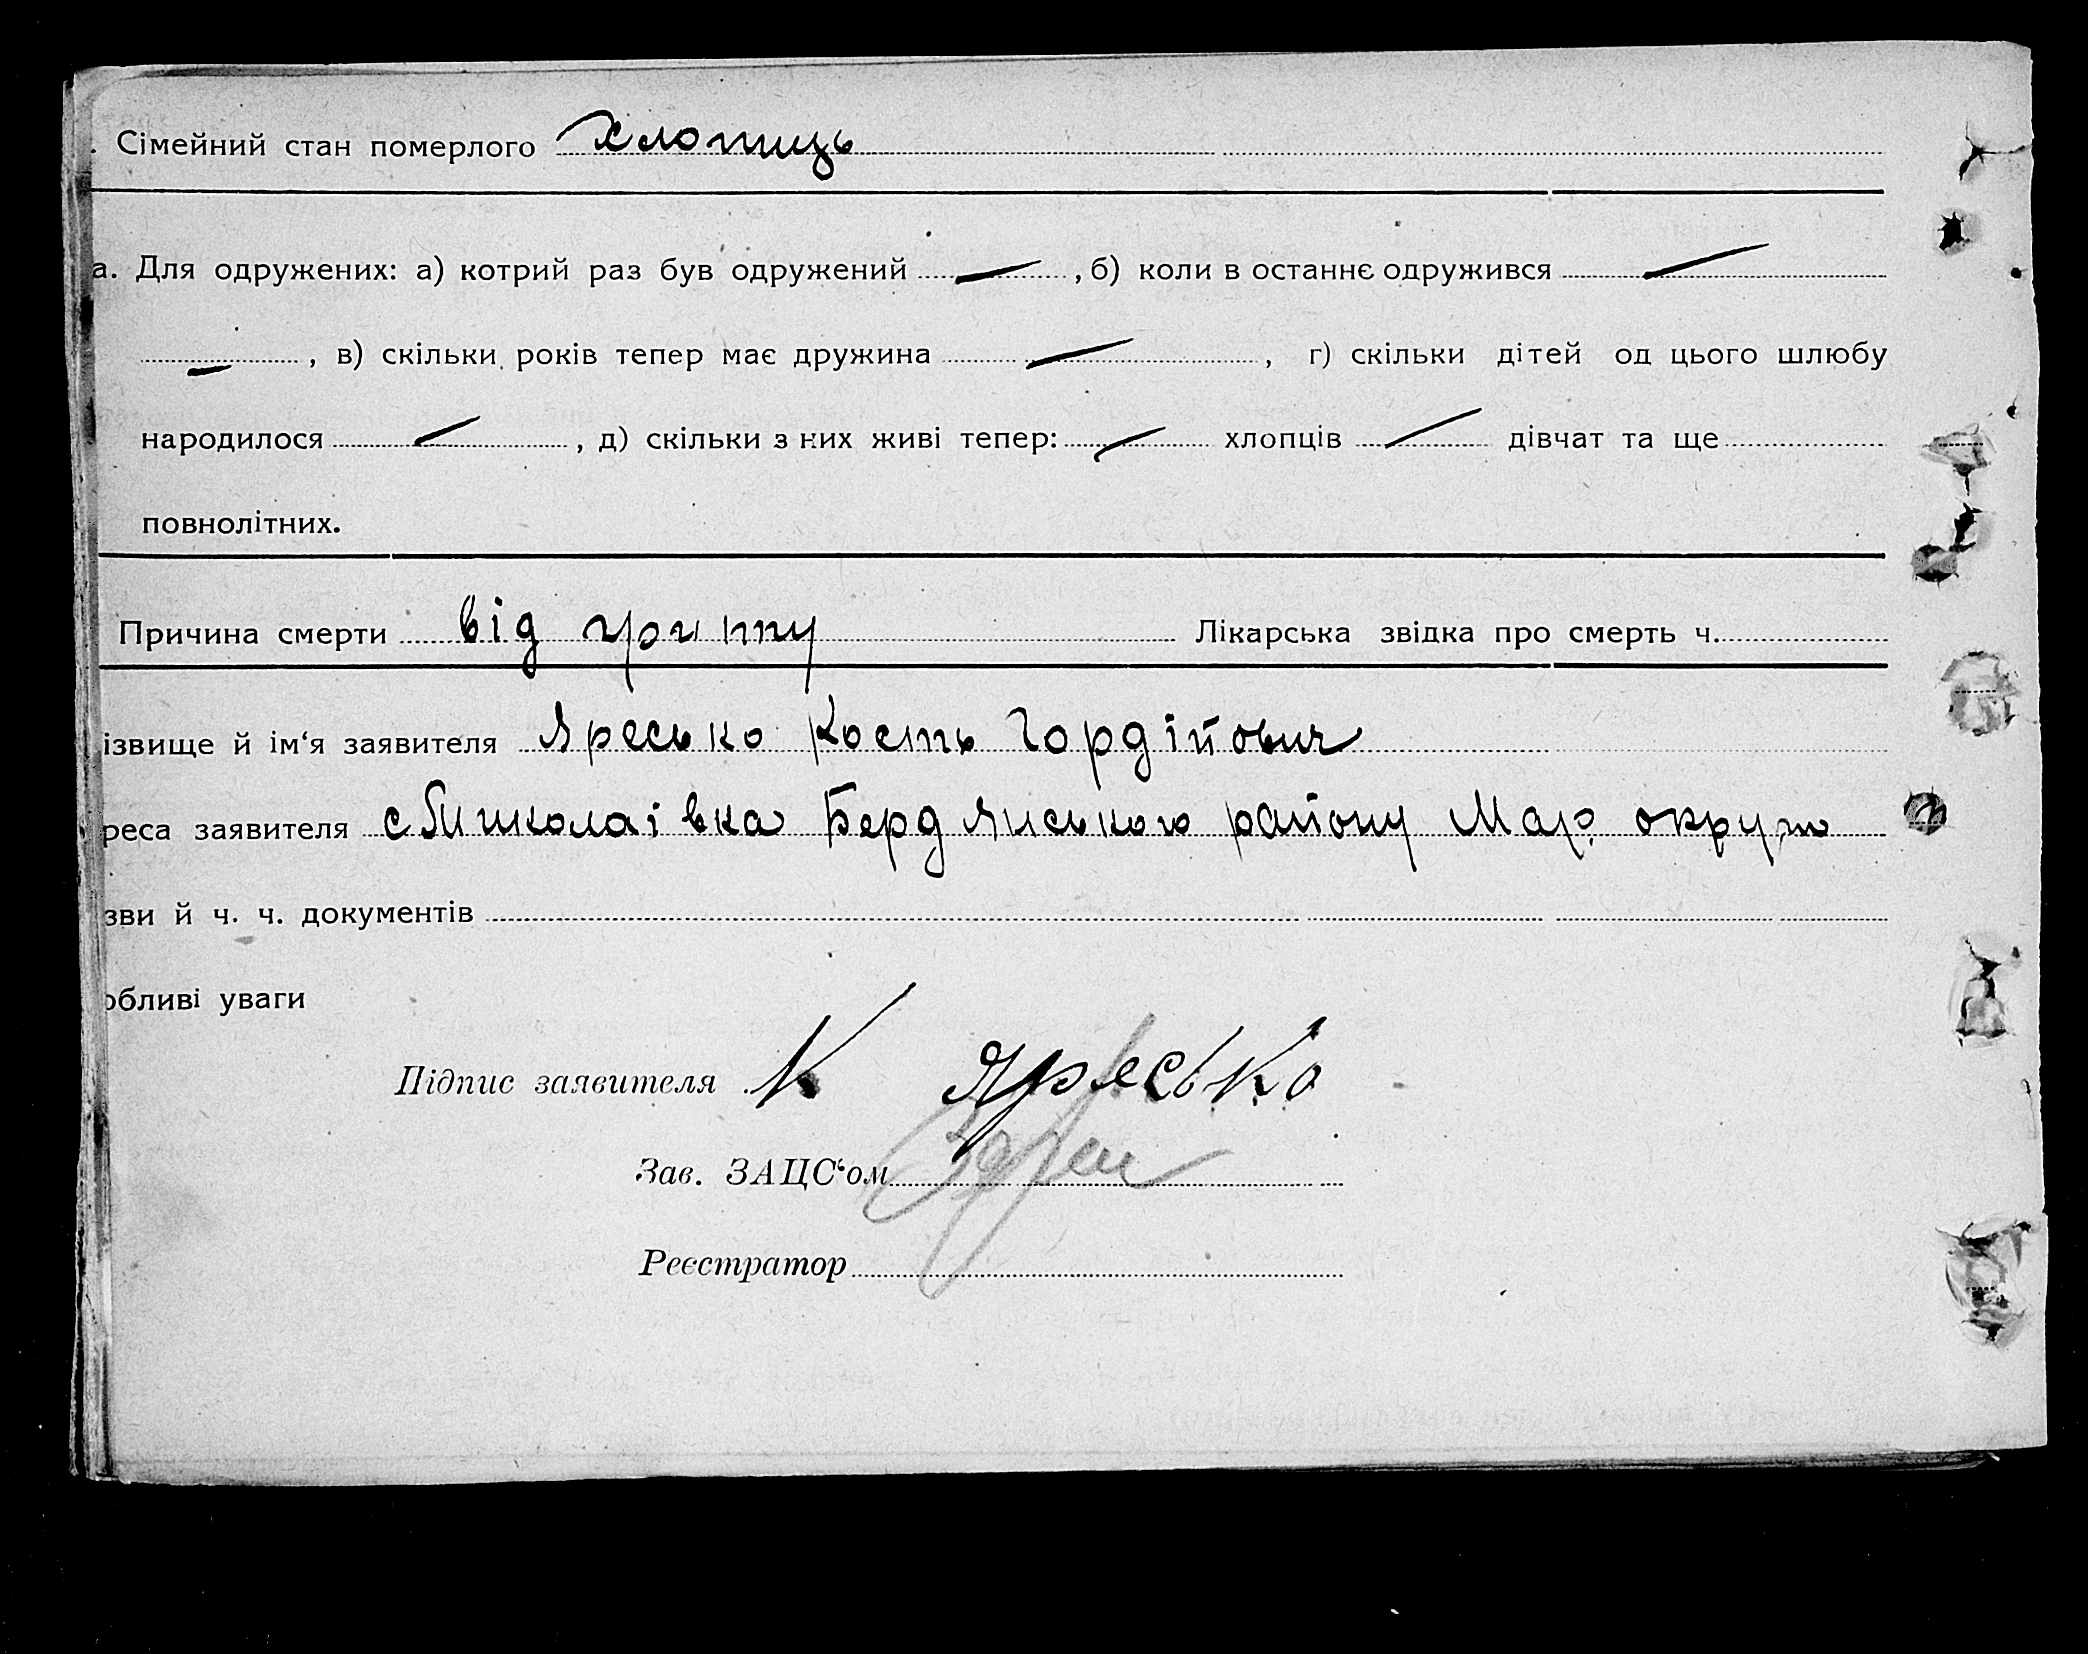 . Сімейний стан померлого хлопиць
а. Для одружених: а) котрий раз був одружений — , б) коли в останнє одружився —
— , в) скільки років тепер має дружина — , г) скільки дітей од цього шлюбу
народилося — , д) скільки з них живі тепер: — хлопців — дівчат та ще
повнолітних.
Причина смерти від грипу Лікарська звідка про смерть ч.
ізвище й ім‘я заявителя Яресько Кость Гордійович
реса заявителя с Миколаівка Бердянського району Мар. округи
зви й ч. ч. документів
обливі уваги
Підпис заявителя К Яресько
Зав. ЗАЦС‘ом
Реєстратор